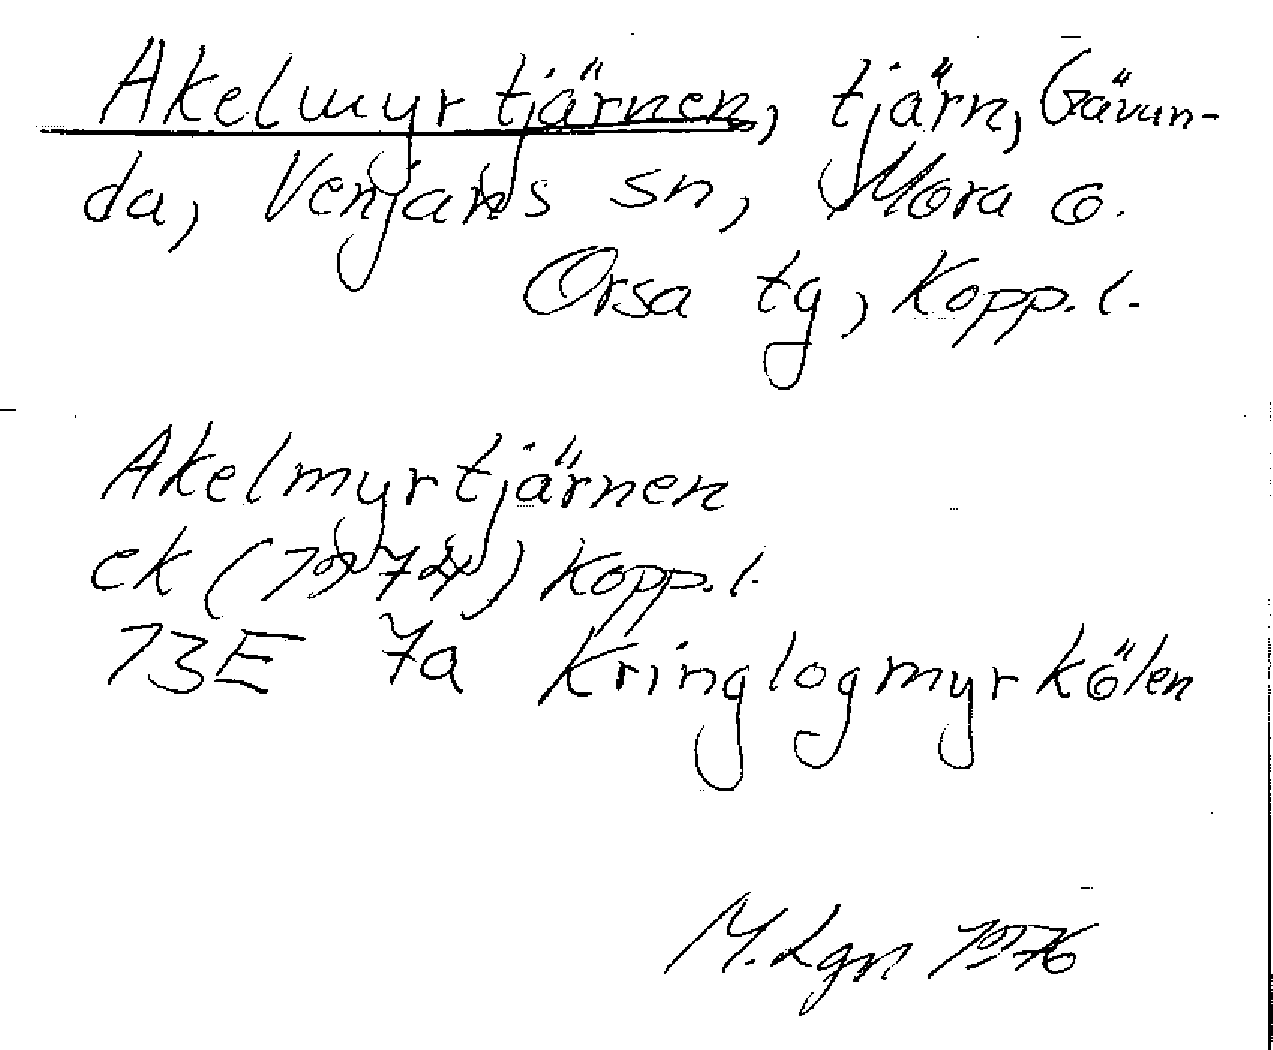 Akelmyrtjärnen, tjärn, Gävun-
da, Venjans sn, Mora o.
Orsa tg, Kopp. l.
Akelmyrtjärnen
ek (1974) Kopp. l.
13E 7a Kringlogmyrkölen
M. Lgn 1976